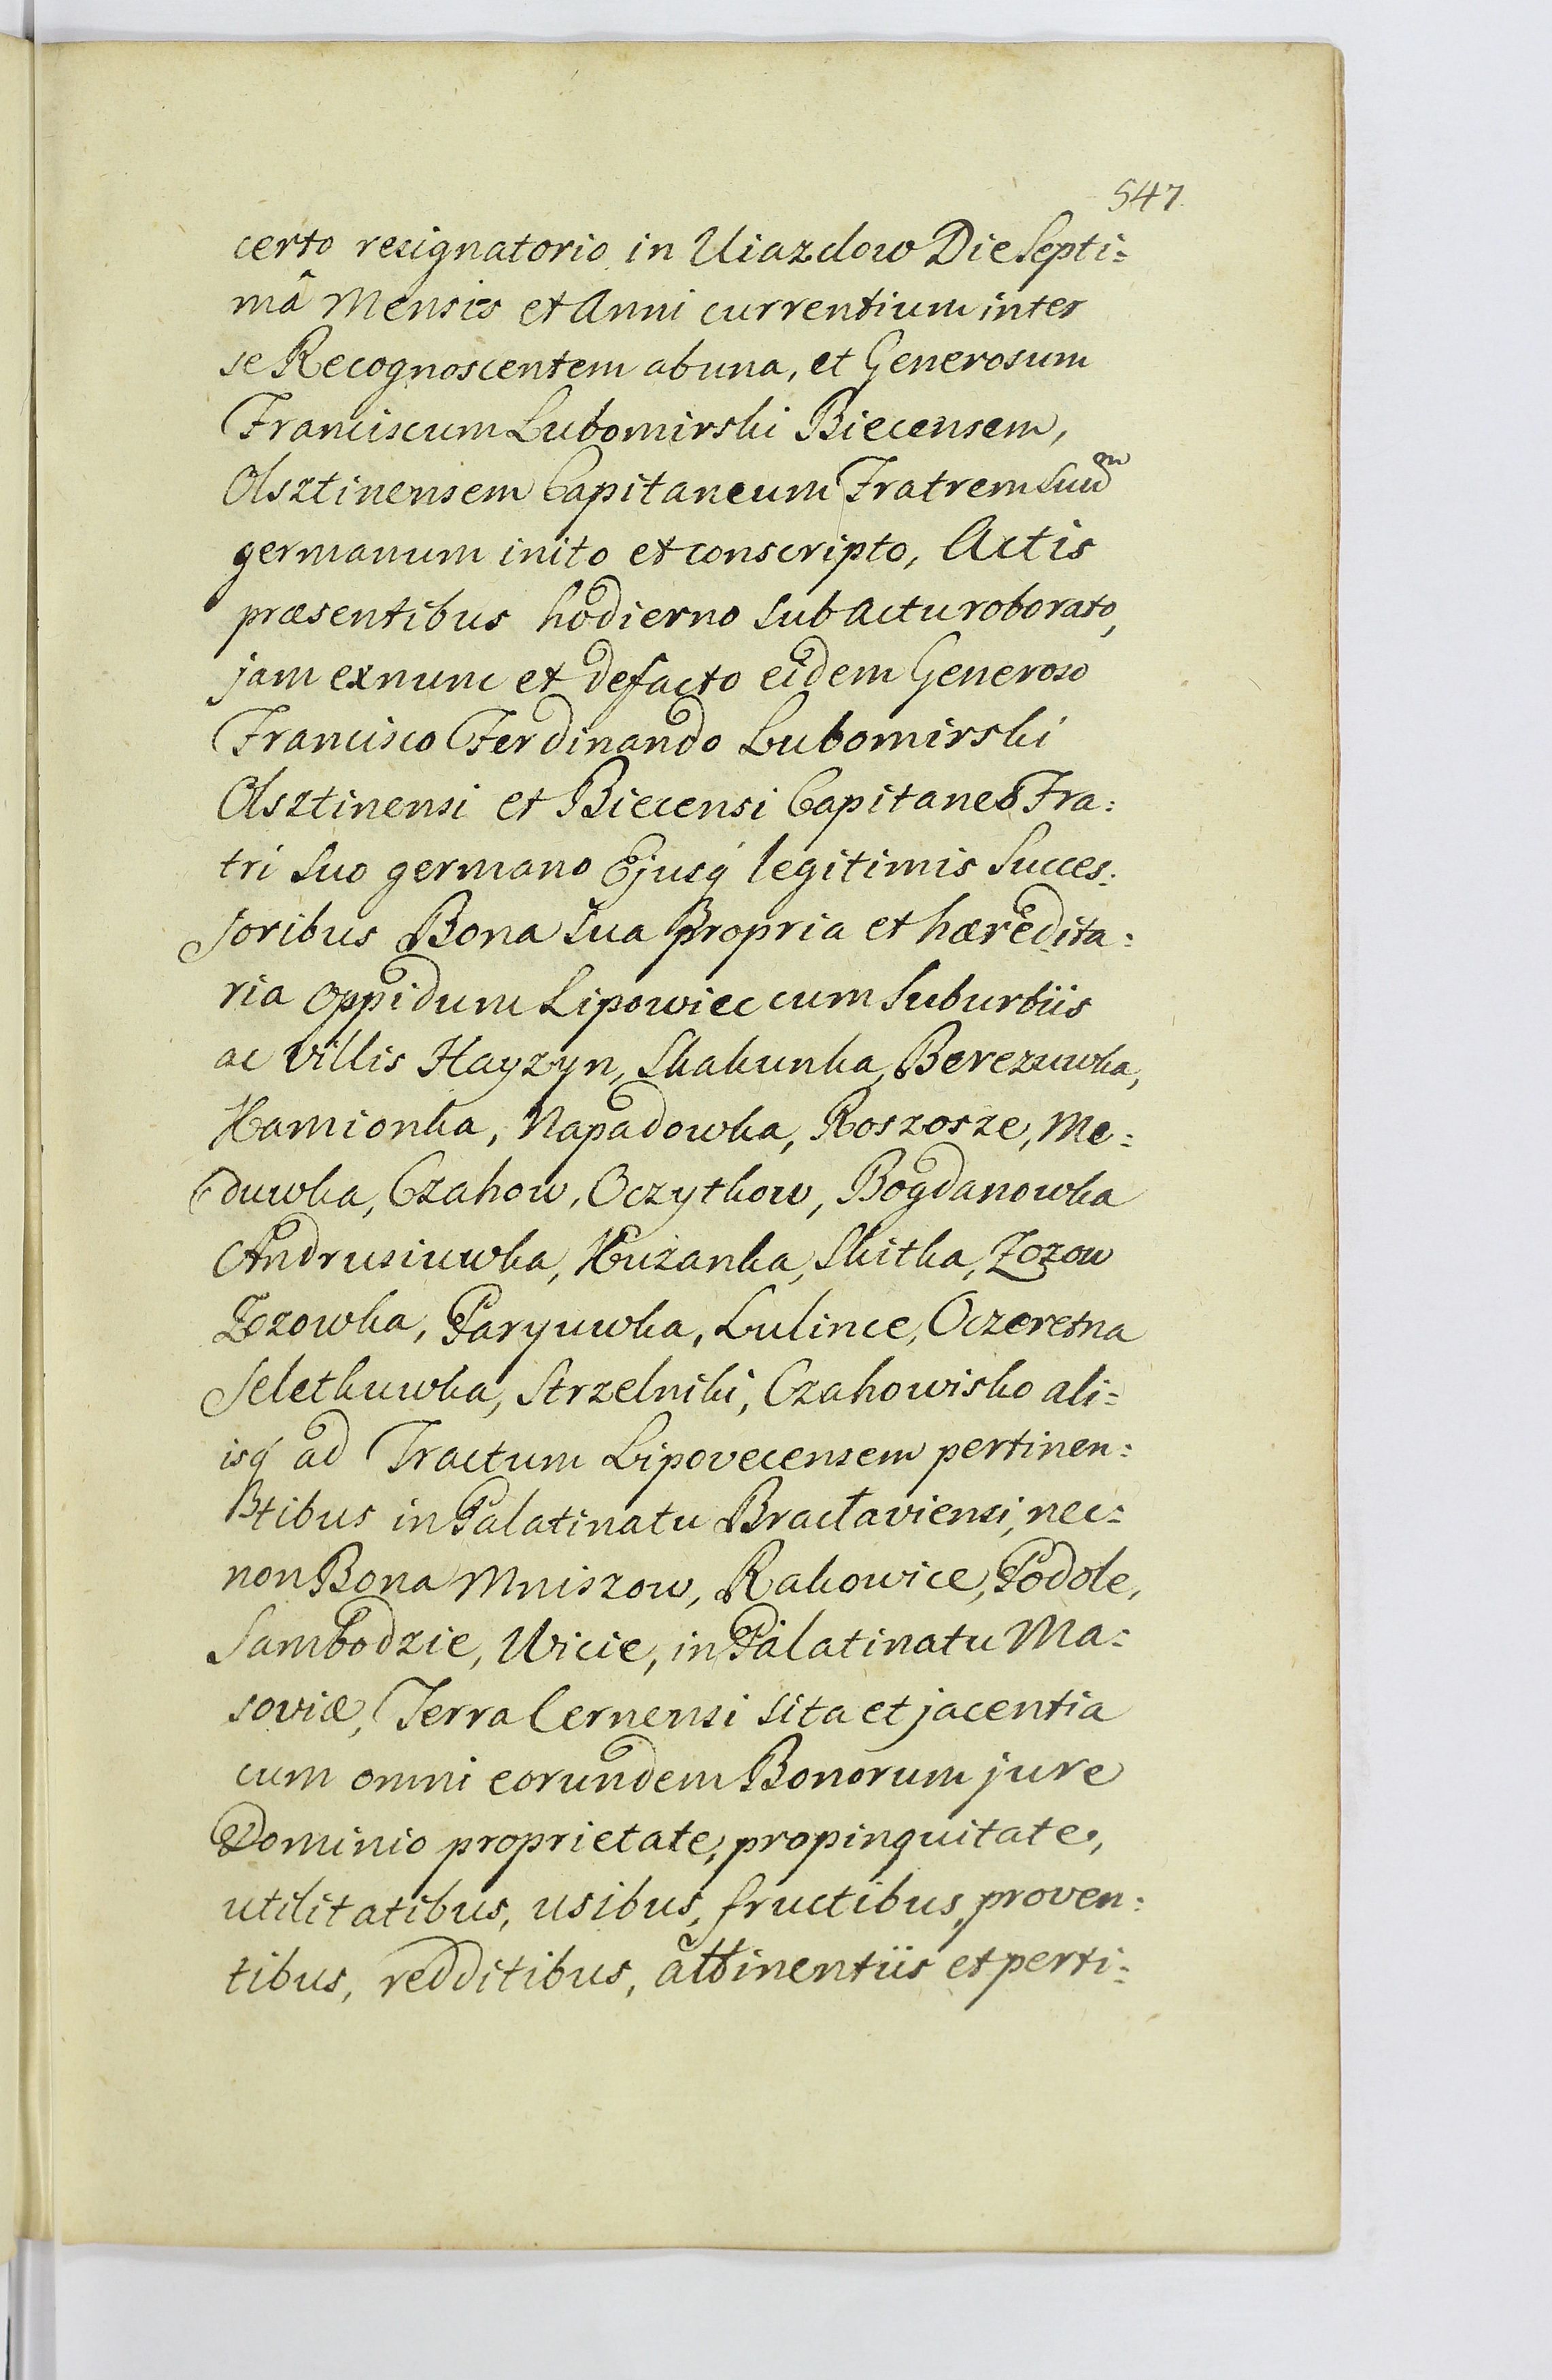 547.
certo resignatorio in Uiazdow Die Septi:
mâ Mensis et Anni currentium inter
se Recognoscentem abuna, et Generosum
Franciscum Lubomirski Biecensem,
Olsztinensem Capitaneum Fratrem Suu͠m
germanum inito et conscripto, Actis
præsentibus hodierno Sub Actu roborato,
jam exnunc et defacto eidem Generoso
Francisco Ferdinando Lubomirski
Olsztinensi et Biecensi Capitaneo Fra:
tri Suo germano Ejusq́ legitimis Succes:
soribus Bona Sua Propria et hæredita:
ria Oppidum Lipowiec cum Suburbiis
ac Villis Hayzyn, Skakunka, Berezuwka,
Kamionka, Napadowka, Roszosze, Me:
duwka, Czahow, Oczytkow, Bogdanowka
Andrusiuwka, Kużanka, Skitka, Zozow
Zozowka, Paryuwka, Lulince, Oczeretna
Seletkuwka, Strzelniki, Czahowisko ali:
isq́ ad Tractum Lipovecensem pertinen:
tibus in Palatinatu Braclaviensi, nec:
non Bona Mniszow, Rakowice, Podole,
Sambodzie, Wicie, in Palatinatu Ma:
soviæ, Terra Cernensi Sita et jacentia
cum omni eorundem Bonorum jure
Dominio proprietate, propinquitate,
utilitatibus, usibus, fructibus, proven:
tibus, redditibus, attinentiis et perti: